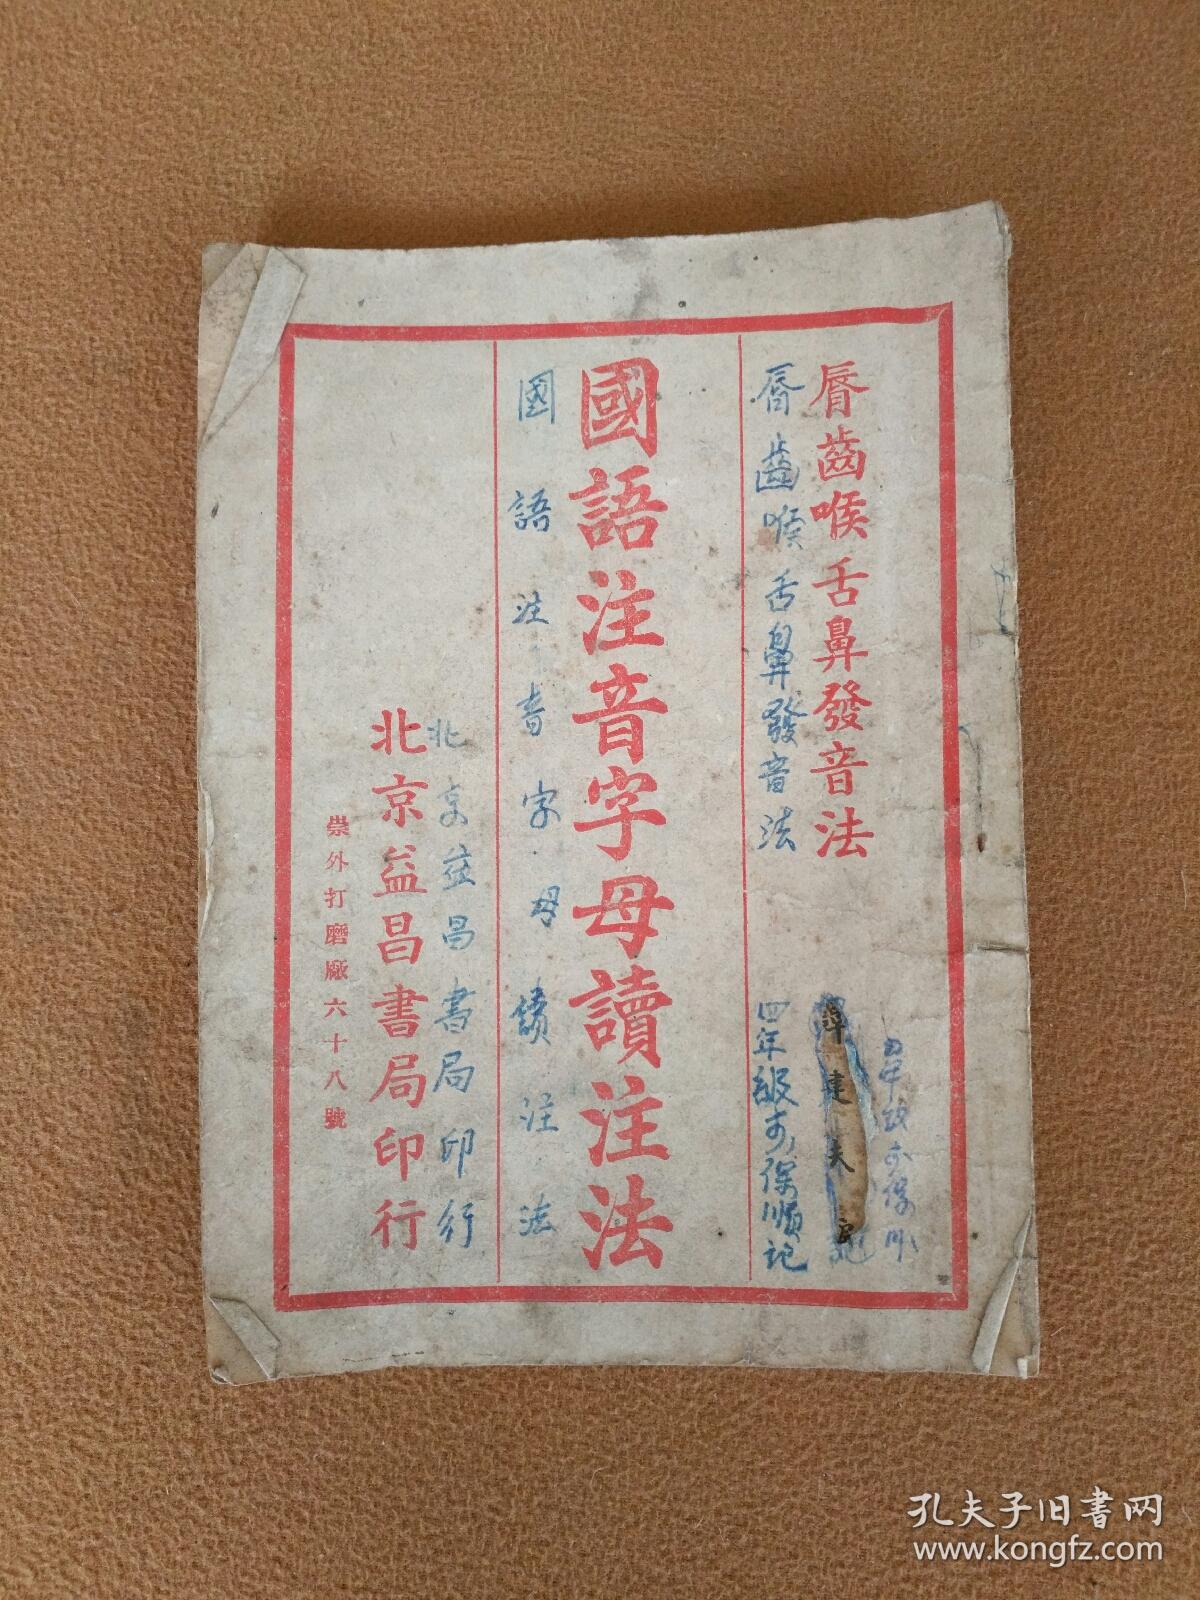 唇齒喉舌鼻發音法
唇齒喉舌鼻發音法
四年級
保順記
國語注音字母讀注法
國語注音字母讀注法
北京益昌書局印行
北京益昌書局印行
崇外打磨廠六十八號
孔夫子旧书网
www.kongfz.com